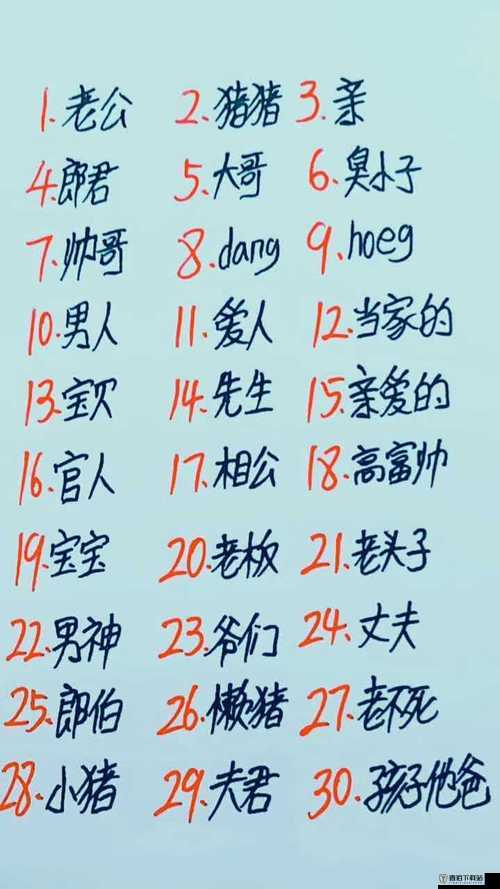 1.老公 2.猪猪 3.亲
4.郎君 5.大哥 6.臭小子
7.帅哥 8.dang 9.hoeg
10.男人 11.爱人 12.当家的
13.宝贝 14.先生 15.亲爱的
16.官人 17.相公 18.高富帅
19.宝宝 20.老板 21.老头子
22.男神 23.爷们 24.丈夫
25.郎伯 26.懒猪 27.老不死
28.小猪 29.夫君 30.孩子他爸